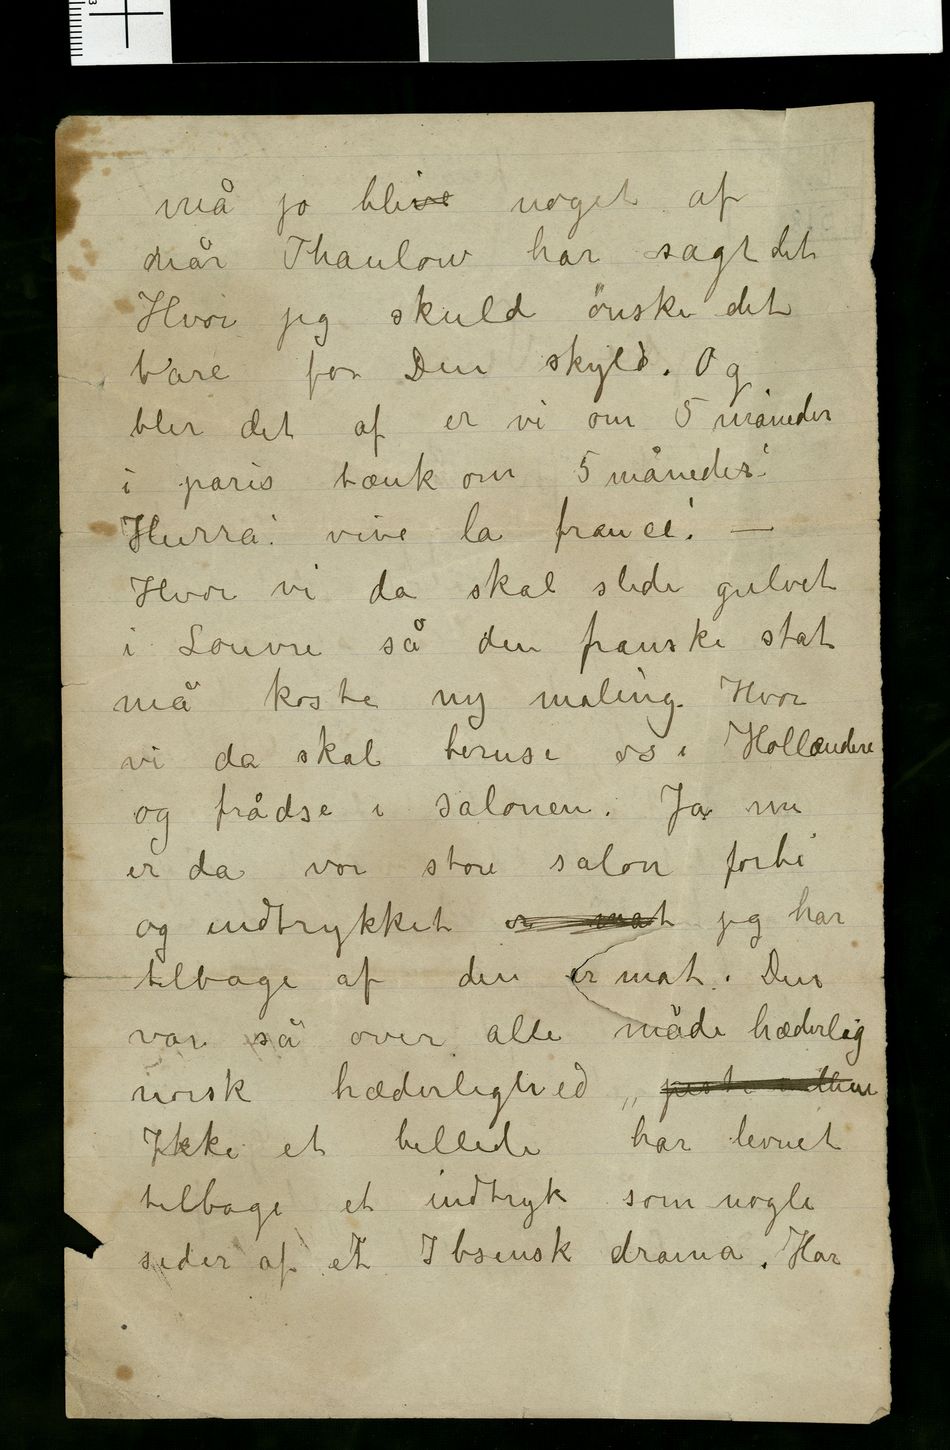 må jo bli noget af
når Thaulow har sagt det
Hvor jeg skuld ønske det
bare for Din skyld. Og
blir det af er vi om 5 måneder
i paris tænk om 5 måneder!
Hurra! vive la france! —
Hvor vi da skal slide gulvet
i Louvre så den franske stat
må koste ny maling. Hvor
vi da skal beruse os i Hollændere
og frådse i salonen. Ja nu
er da vor store salon forbi
og indtrykket er mat jeg har
tilbage af den er mat. Den
var så over alle måde hæderlig
norsk hæderlighed „
Ikke et billede har levnet
tilbage et indtryk som nogle
sider af et Ibsensk drama. Har